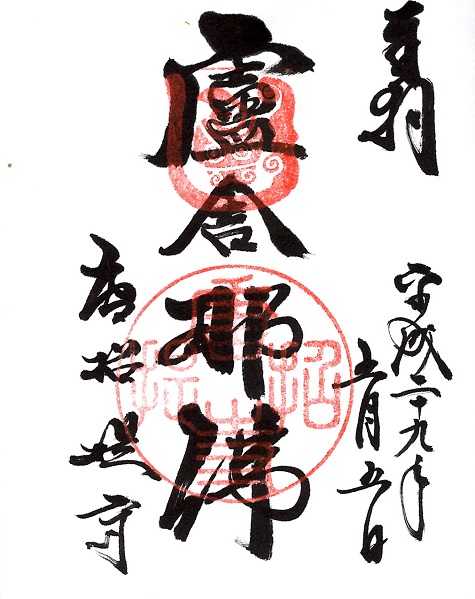 奉拝
平成二十九年
五月五日
盧舎那佛
唐招提寺